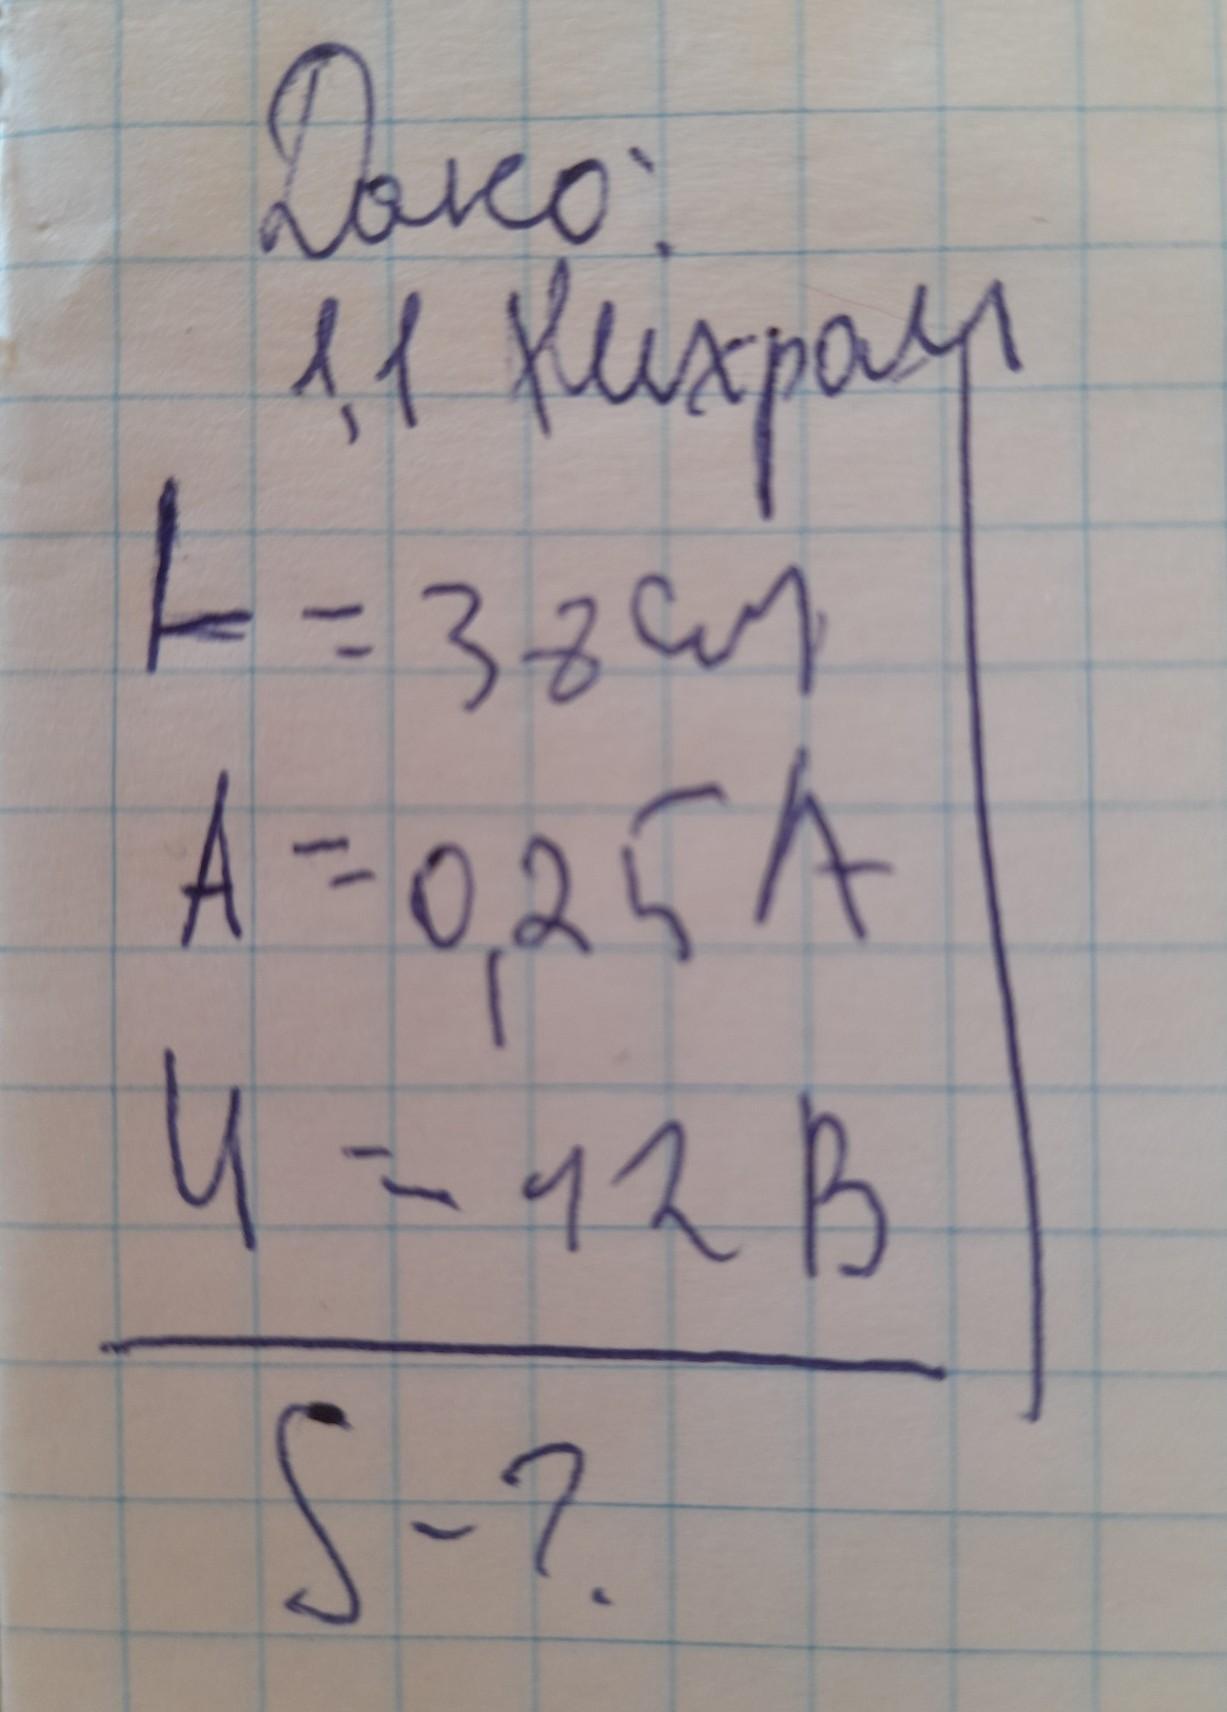 Дано:
1,1 Нихром
L = 38 см
A = 0,25 A
U = 12 В
S - ?